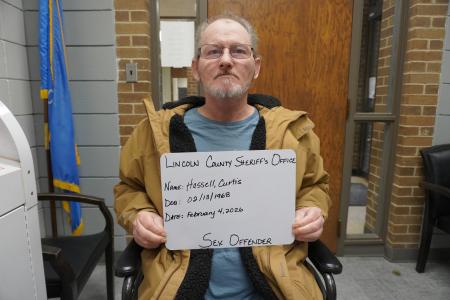 LINCOLN COUNTY SHERIFF'S OFFICE
NAME: Hassell, Curtis
DOB: 02/13/1968
DATE: February 4, 2026
SEX OFFENDER